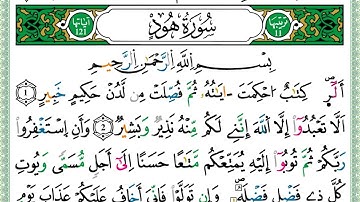 ترتيبها ١١ سُورَةُ هُودٍ آياتها ١٢٣
بِسْمِ اللَّهِ الرَّحْمَٰنِ الرَّحِيمِ
الٓر ۚ كِتَابٌ أُحْكِمَتْ آيَاتُهُ ثُمَّ فُصِّلَتْ مِن لَّدُنْ حَكِيمٍ خَبِيرٍ ١
أَلَّا تَعْبُدُوا إِلَّا اللَّهَ ۚ إِنَّنِي لَكُم مِّنْهُ نَذِيرٌ وَبَشِيرٌ ٢ وَأَنِ اسْتَغْفِرُوا
رَبَّكُمْ ثُمَّ تُوبُوا إِلَيْهِ يُمَتِّعْكُم مَّتَاعًا حَسَنًا إِلَىٰ أَجَلٍ مُّسَمًّى وَيُؤْتِ
كُلَّ ذِي فَضْلٍ فَضْلَهُ ۖ وَإِن تَوَلَّوْا فَإِنِّي أَخَافُ عَلَيْكُمْ عَذَابَ يَوْمٍ